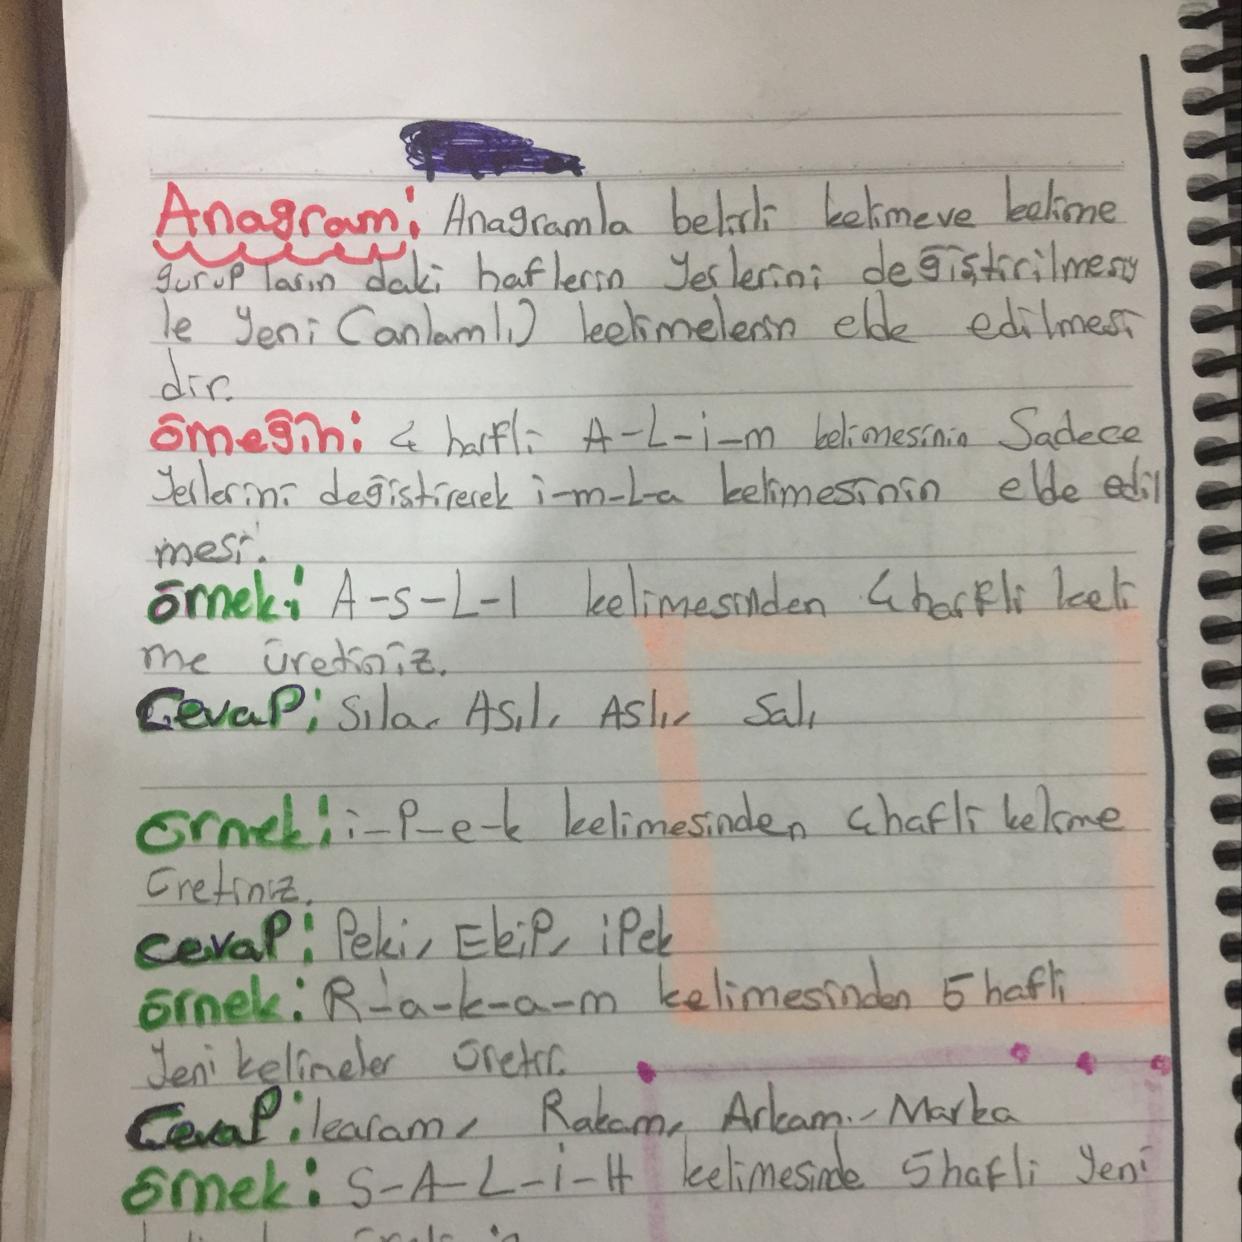 Anagram: Anagramla belirli kelimeve kelime
gurupların daki haflerin yerlerini değiştirilmesiy
le yeni (anlamlı) kelimelerin elde edilmesi
dir.
örneğin: 4 harfli A-L-i-m kelimesinin Sadece
yerlerini değiştirerek i-m-L-a kelimesinin elde edil
mesi.
örnek: A-s-L-I kelimesinden 4 harfli keli
me üretiniz.
CevaP: Sıla, Asıl, Aslı, Salı
örnek: i-P-e-k kelimesinden 4 hafli kelime
üretiniz.
cevaP: Peki, EkiP, iPek
örnek: R-a-k-a-m kelimesinden 5 hafli
Yeni kelimeler üretir.
CevaP: karam, Rakam, Arkam, Marka
örnek: S-A-L-i-H kelimesinde 5 hafli Yeni